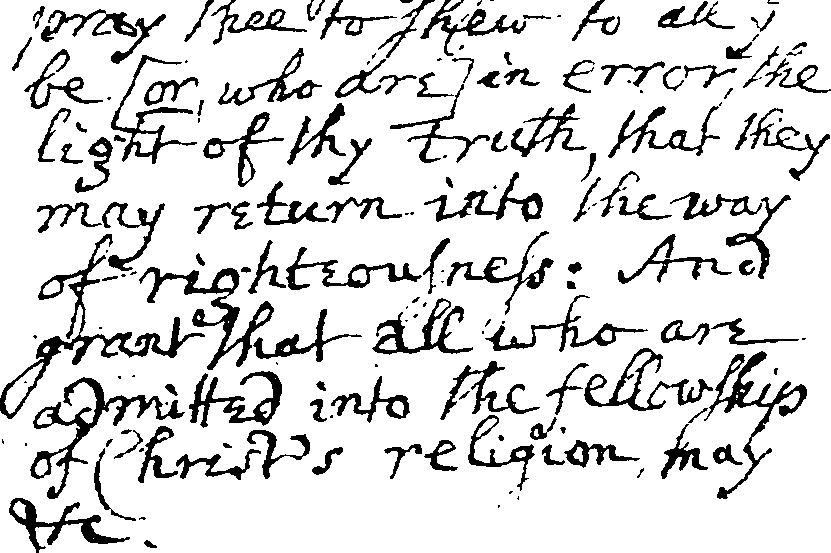 pray thee to shew to all y
be [or, who are] in error, the
light of thy truth, that they
may return into the way
of righteousness: And
grant that all who are
admitted into the fellowship
of Christ's religion, may
&c.